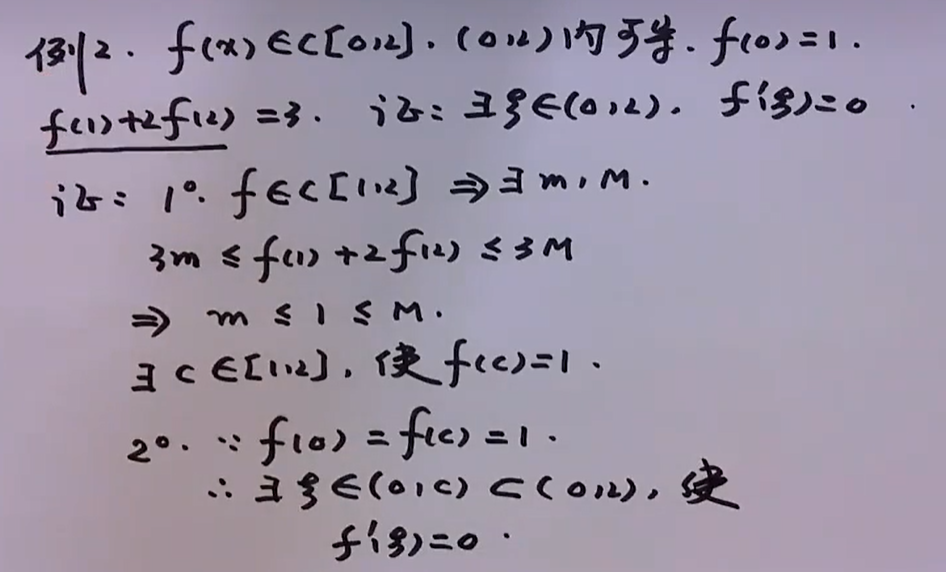 例2. f(x)∈C[0,2]. (0,2)内可导. f(0)=1.
f(1)+2f(2)=3. 证: ∃ξ∈(0,2). f'(ξ)=0.
证: 1°. f∈C[1,2] ⇒ ∃ m, M.
3m ≤ f(1)+2f(2) ≤ 3M
⇒ m ≤ 1 ≤ M.
∃ c∈[1,2], 使 f(c)=1.
2°. ∵ f(0)=f(c)=1.
∴ ∃ξ∈(0,c)⊂(0,2), 使
f'(ξ)=0.